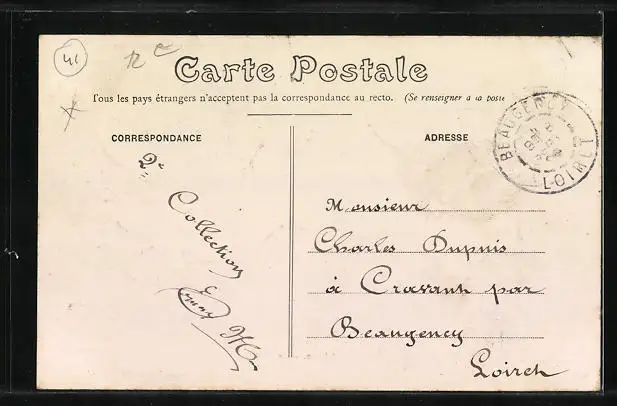 41
Carte Postale
Tous les pays étrangers n'acceptent pas la correspondance au recto. (Se renseigner à la poste
CORRESPONDANCE
2e
Collection
ADRESSE
BEAUGENCY
LOIRET
Monsieur
Charles Dupuis
à Cravant par
Beaugency
Loiret